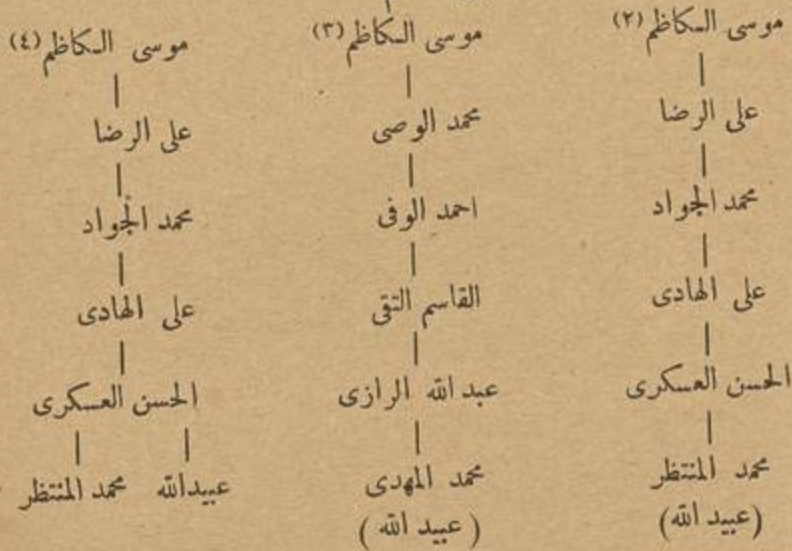 موسى الكاظم (٢)
على الرضا
محمد الجواد
على الهادى
الحسن العسكرى
محمد المنتظر
(عبيد الله)
موسى الكاظم (٣)
محمد الوصى
احمد الوفى
القاسم التقى
عبد الله الرازى
محمد المهدى
(عبيد الله)
موسى الكاظم (٤)
على الرضا
محمد الجواد
على الهادى
الحسن العسكرى
عبيدالله محمد المنتظر